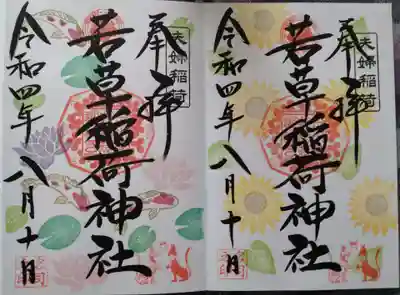 奉拝
夫婦稲荷
若草稲荷神社
令和四年八月十日
奉拝
夫婦稲荷
若草稲荷神社
令和四年八月十日